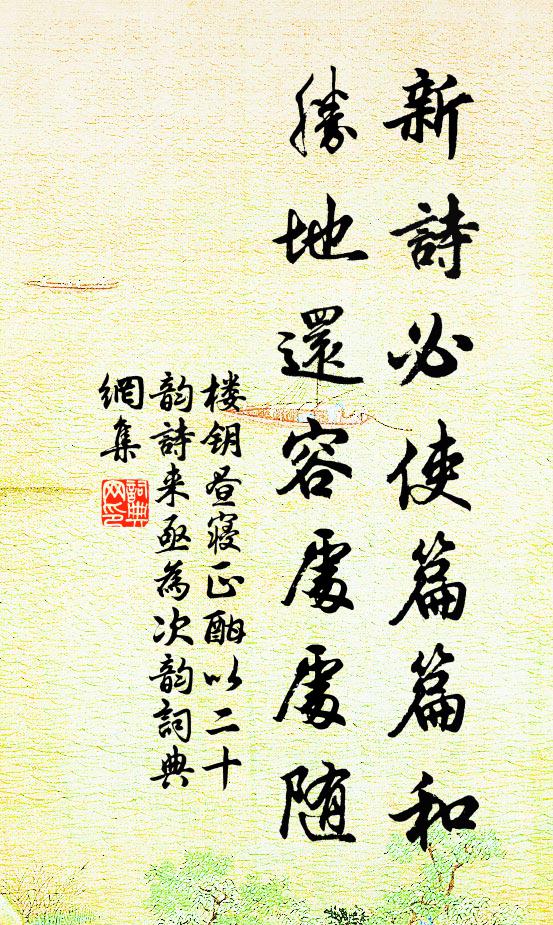 新詩必使篇篇和
勝地還容處處隨
楼钥昼寝正酣以二十
韵詩来亟為次韵詞典
網集
詞典
网印